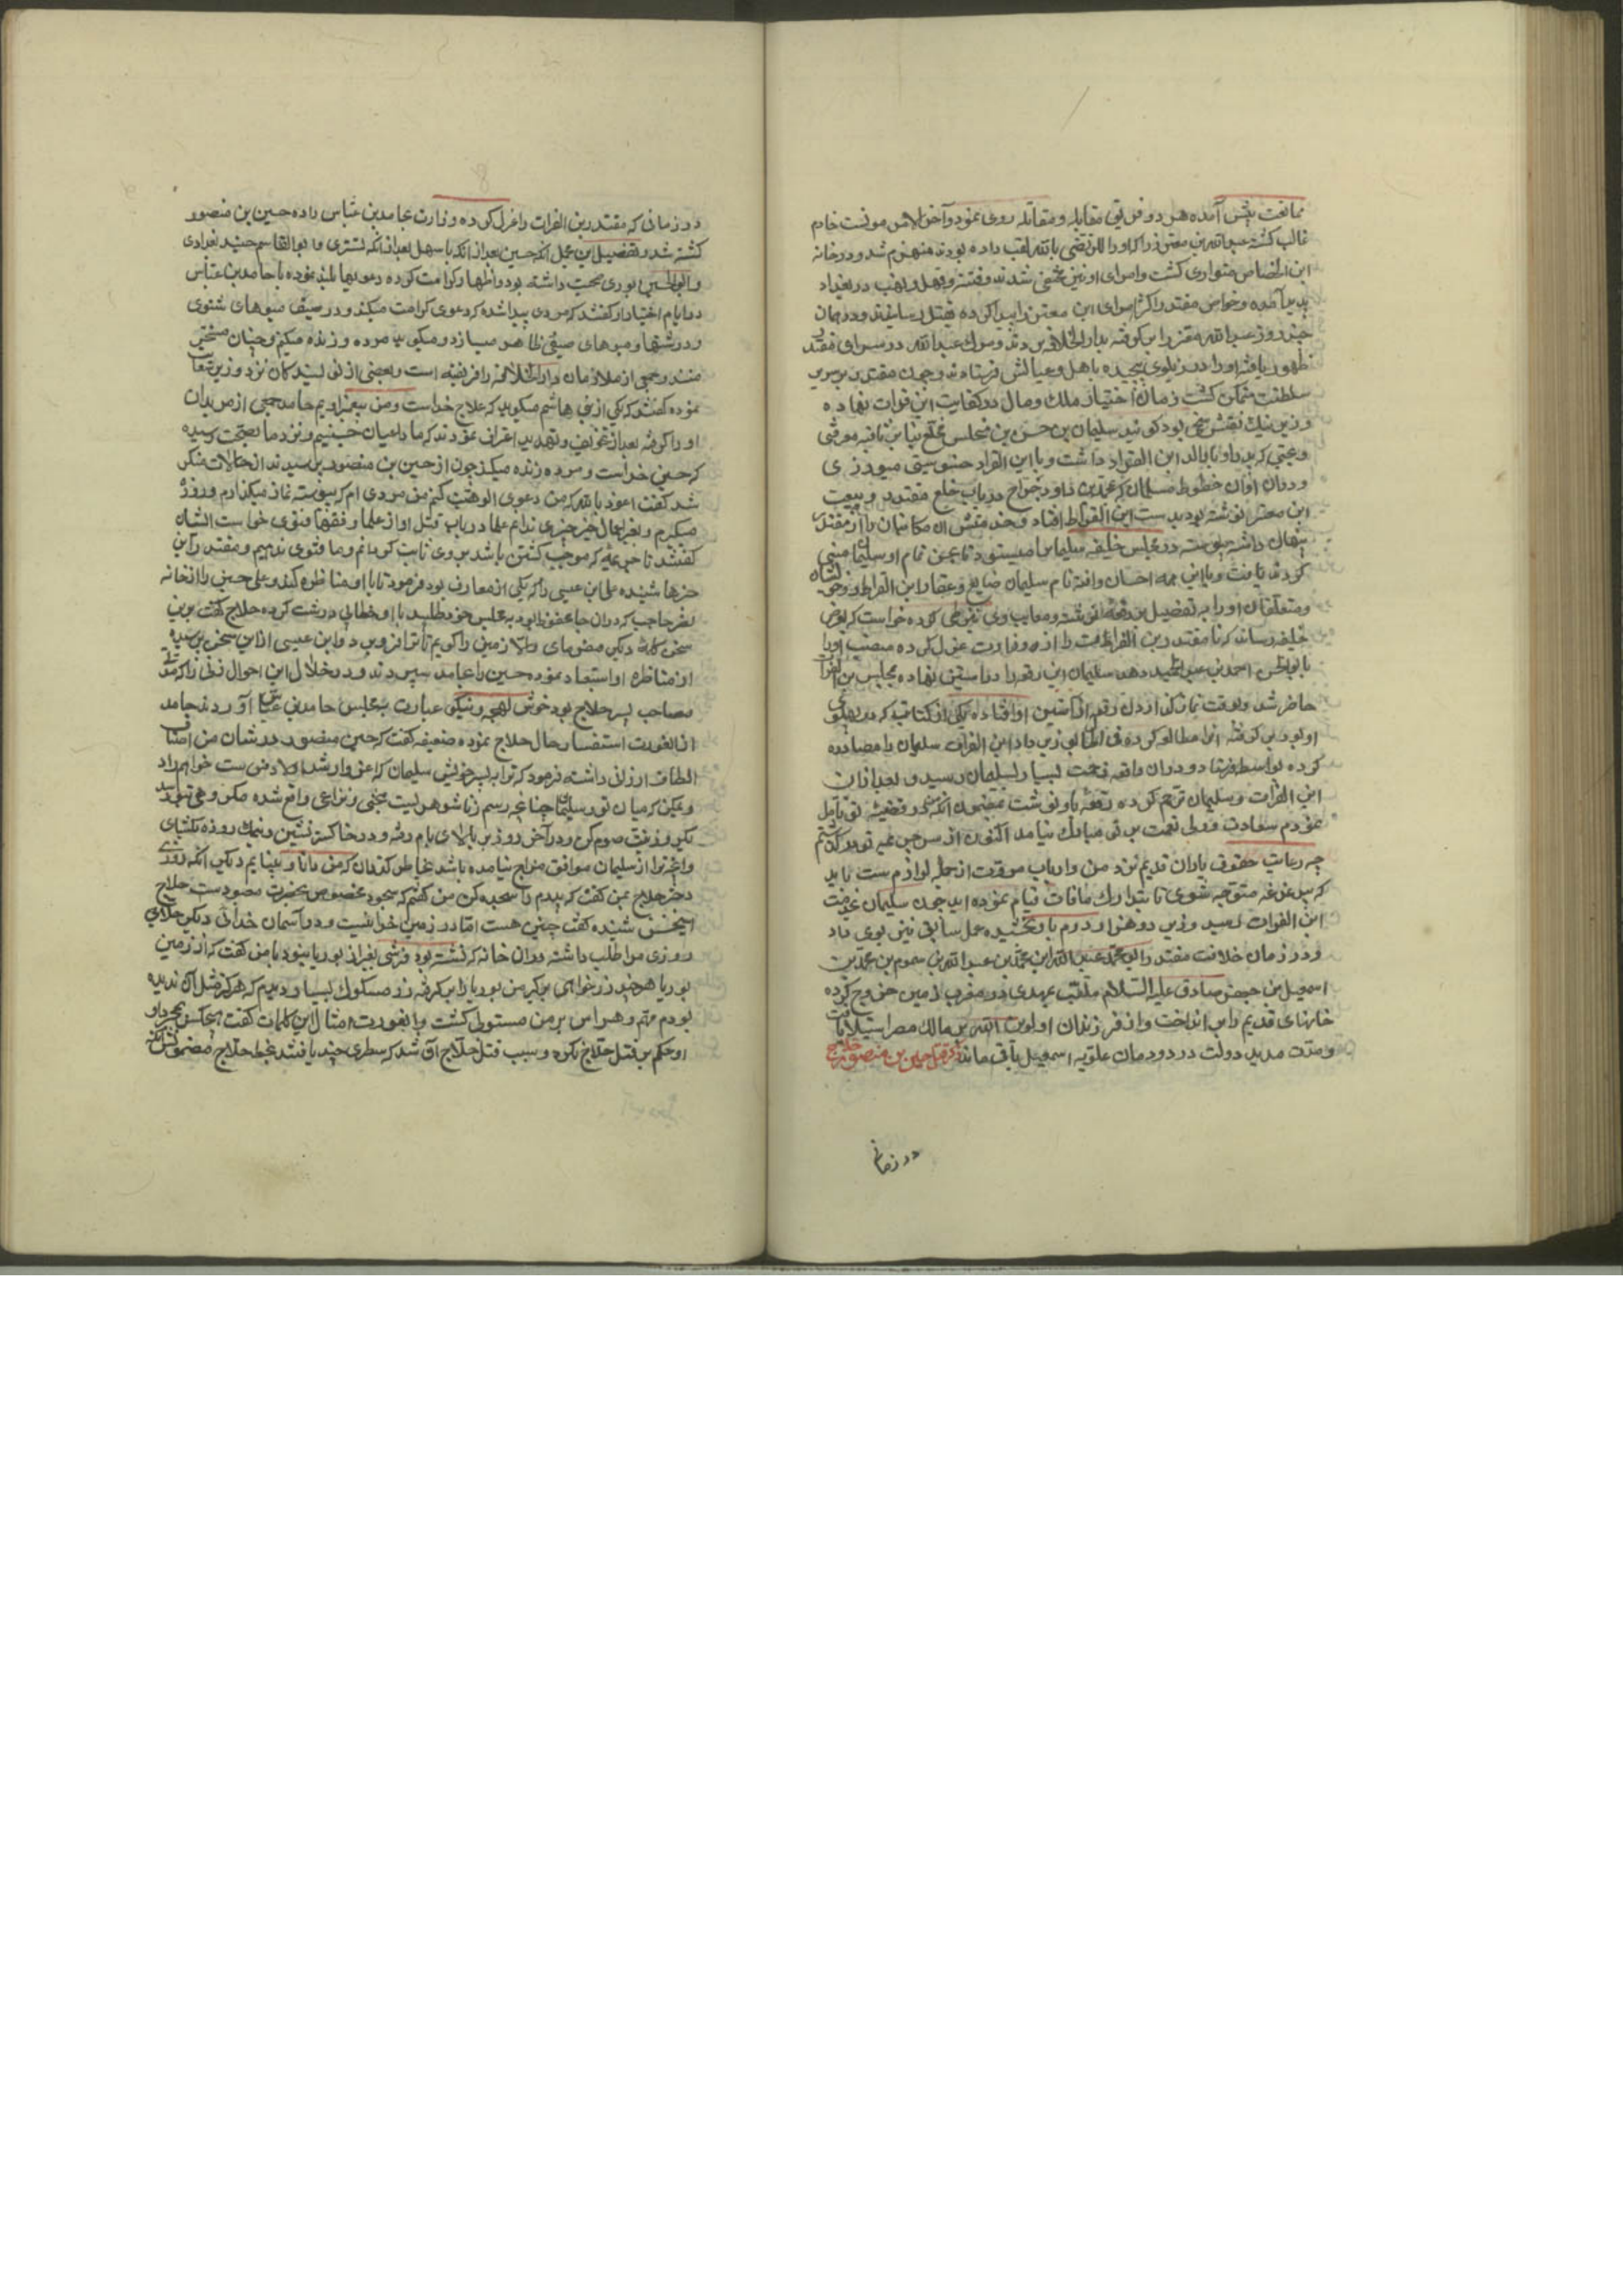 ممانعت پیش آمده هر دو فریق مقابله و مقاتله روی نمود و آخر الامر مونس خادم
غالب کشته عبدالله بن معتز را که او را المرتضی بالله لقب داده بودند منهزم شد و در خانه
ابن الخصاص متواری کشت و امرای او نیز مختفی شدند و فتنه و قهل و نهب در بغداد
پدید آمده و خواص مقتدر اکثر امرای ابن معتز را پیدا کرده بقتل رسانیدند و در همان
چند روز عبدالله معتز را بن کوفته بدار الخلافه بردند و موت عبدالله در سرای مقتدر
ظهور یافته او را در زیلوی پیچیده باهل و عیالش فرستادند و چون مقتدر بر سریر
سلطنت متمکن کشت زمان اختیار ملک و مال در کفایت ابن فرات نهاده
وزیر نیک نفس سخی بود کویند سلیمان بن حسن بن مخلس
و در آن اوان خطوط سلیمان که محمد بن داود جراح در باب خلع مقتدر و بیعت
ابن معتز نوشته بود بدست ابن الفرات افتاد
پنهان داشته پیوسته در مجلس خلیفه سلیمان را میستود تا بیمن تمام او سلیمان
کردند یافت و با این همه احسان وافته نام سلیمان ضایع و عقار ابن الفرات و وجوه
و متعلقان او را به تفصیل بر رقعه نوشته و معایب وی نیز طی کرده خواست که بعرض
خلیفه رساند که تا مقتدر بن الفرات را از وزارت عزل کرده منصب او را
بابو الحسن احمد بن عبد الحمید دهد سلیمان این رقعه را در آستین نهاده بمجلس بن الفرات
حاضر شد و وقت نماز کذاردن رقعه از آستین او افتاده یکی از کتاب که در پهلوی
او بود بر کرفته آنرا مطالعه کرده فی الحال بوزیر داد ابن الفرات سلیمان را مصادره
کرده بواسط فرستاد و در آن واقعه زحمت بسیار بسلیمان رسید و بعد از آن
ابن الفرات بر سلیمان ترحم کرده رقعه باو نوشت بمضمون آنکه در قضیه تو تأمل
نمودم سعادت
چه رعایت حقوق یاران قدیم نزد من و ارباب مروت از جمله لوازم ست باید
که
ابن الفرات رسید وزیر دو هزار درم باو بخشیده عمل سابق نیز بوی داد
و در زمان خلافت مقتدر ابو محمد عبید الله بن محمد بن عبدالله بن میمون بن محمد بن
اسمعیل بن جعفر صادق علیه السلام ملقب بمهدی در مغرب زمین خروج کرده
خانهای قدیم را بر انداخت و از فرزندان او اول بر ممالک مصر استیلا یافت
و مدت مدید دولت در دودمان علویه اسمعیل باقی ماند ذکر قتل حسین بن منصور حلاج
در زمانی
در زمانی که مقتدر بن الفرات را عزل کرده وزارت بحامد بن عباس داده حسین بن منصور
کشته شد و تفصیل این مجمل آنکه حسین بعد از آنکه با سهل بن عبدالله تستری و با ابو القاسم جنید بغدادی
و ابو الحسین نوری صحبت داشته بود و اظهار کرامت کرده دعویهای بلند نموده با حامد بن عباس
در ایام اختیار او کفتند که مردی پیدا شده که دعوی کرامت میکند و در صیف میوهای شتوی
و در شتا میوهای صیفی ظاهر میسازد و میکوید مرده زنده میکنم و جنیان مسخر
منند و جمعی از ملازمان دار الخلافه را فریفته است و بعضی از نویسندکان نزد وزیر سعایت
نموده کفتند که یکی از بنی هاشم میکوید که حلاج خداست و من پیغمبر اویم حامد جمعی از مریدان
او را کرفته بعد از تخویف و تهدید اعتراف نمودند که ما داعیان حسینیم و نزد ما بصحت رسیده
که حسین خداست و مرده زنده میکند چون از حسین بن منصور پرسیدند از حالات منکر
شد کفت اعوذ بالله که من دعوی الوهیت کنم من مردی ام که پیوسته نماز میکذارم و روزه
میکیرم و بغیر اعمال خیر چیزی ندانم علما در باب قتل او از علما و فقها فتوی خواست ایشان
کفتند تا جریمه که موجب کشتن باشد بر وی ثابت نکردد ما فتوی ندهیم و مقتدر این
خبرها شنیده علی بن عیسی را که یکی از معارف بود فرمود تا با او مناظره کند و علی حسین را از خانه
نصر حاجب که در آن جا محفوظ بود بمجلس خود طلبید با او خطابی درشت کرده حلاج کفت برین
سخن کلمه دیکر میفزای والا زمین را کویم تا ترا فرو برد و ابن عیسی از این سخن ترسیده
از مناظره او استبعاد نموده حسین را بحامد سپردند و در خلال این احوال زنی را که مدتی
مصاحب پسر حلاج بود خوش لهجه و نیکو عبارت بمجلس حامد بن عباس آوردند حامد
از آن عورت استفسار حال حلاج نموده ضعیفه کفت که حسین منصور در شان من اصناف
الطاف ارزانی داشته فرمود که ترا به پسر خویش سلیمان که اعز و ارشد اولاد من ست خواهم داد
و ممکن که میان تو و سلیمان چنانچه رسم زنا شوهریست بحثی و نزاعی واقع شده
یک روز نیت صوم کن و در آخر روز بر بالای بام رفته و در خاکستر نشین و نمک روزه بکشای
و آنچه ترا از سلیمان موافق مزاج نیامده باشد بخاطر کذران که من دانا و بینایم دیکر آنکه روزی
دختر حلاج بمن کفت که پدرم را سجده کن من کفتم که سجود مخصوص بحضرت معبودست حلاج
این سخن شنیده کفت چنین هست اما در زمین خدائیست و در آسمان خدائی دیکر حلاج
روزی مرا طلب داشته در آن خانه که نشسته بود فرشی بغیر از بوریا نبود با من کفت که از زمین
بوریا هر چند زر خواهی بر کیر من بوریا را بر کرفته زر مسکوک بسیار دیدم که هرکز مثل آن ندیده
بودم وهم و هراس بر من مستولی کشت و آنعورت امثال این کلمات کفت
او حکم بر قتل حلاج نکرد و سبب قتل حلاج آن شد که سطری چند یافتند بخط حلاج مضمونش آنکه